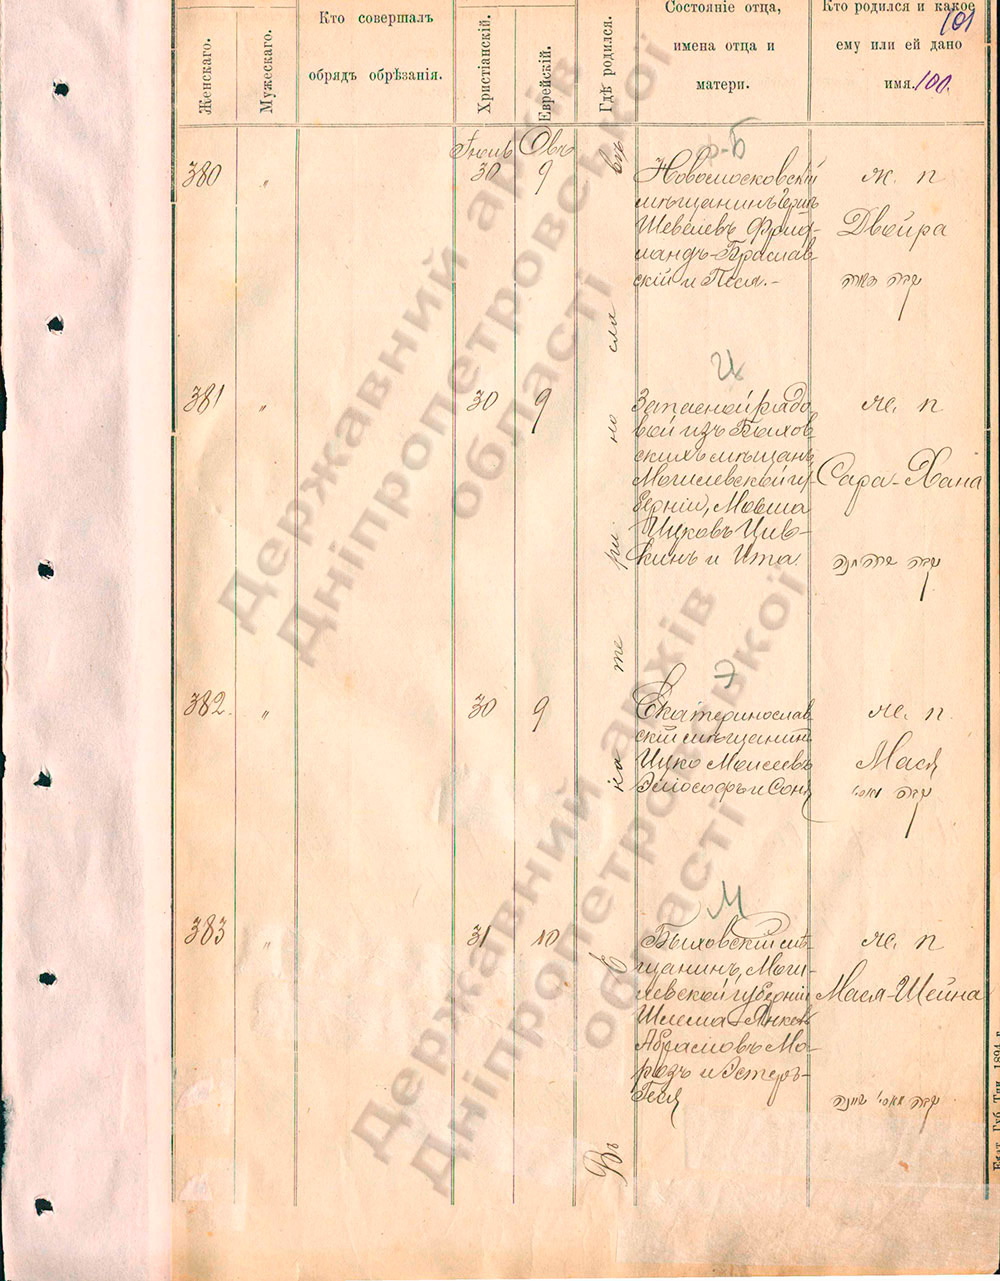 Женскаго.
Мужескаго.
Кто совершалъ
обрядъ обрѣзанія.
Христіанскій.
Еврейскій.
Гдѣ родился.
Состояніе отца,
имена отца и
матери.
Кто родился и какое
ему или ей дано
имя.
101
100.
Въ Екатеринославѣ
380
"
30
9
Новомосковскій
мѣщанинъ Герш
Шевелевъ Фрид-
ландъ-Браслав-
скій и Песя.-
ж. п
Двейра
И
381
"
30
9
Запасной рядо
вой изъ Быхов
скихъ мѣщанъ
Могилевской гу-
берніи, Мовша
Ицковъ Цив-
кинъ и Ита.
ж. п
Сара-Хана
Э
382.
"
30
9
Екатеринослав
скій мѣщанинъ
Ицко Моисеевъ
и Соня
ж. п.
Мася
М
383
"
31
10
Быховскій мѣ-
щанинъ, Моги-
левской губерніи
Шлема-Янкель
Абрамовъ Мо-
розъ и Эстеръ-
Геся
ж. п
Мася-Шейна
Державний архів
Дніпропетровської
області
Державний архів
Дніпропетровської
області
Екат. Губ. Тип. 1894 г.